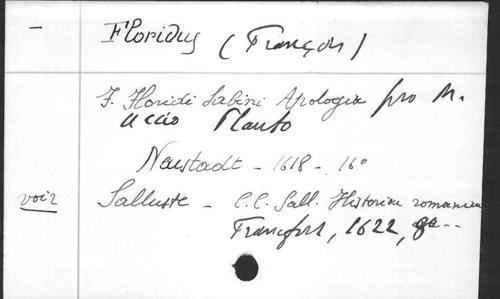 — Floridus (François)
F. Floridi Sabini Apologia pro M.
Accio Plauto
Neustadt - 1618 - 16°
voir Salluste - C. C. Sall. Historiae romanae
Francfort, 1622,